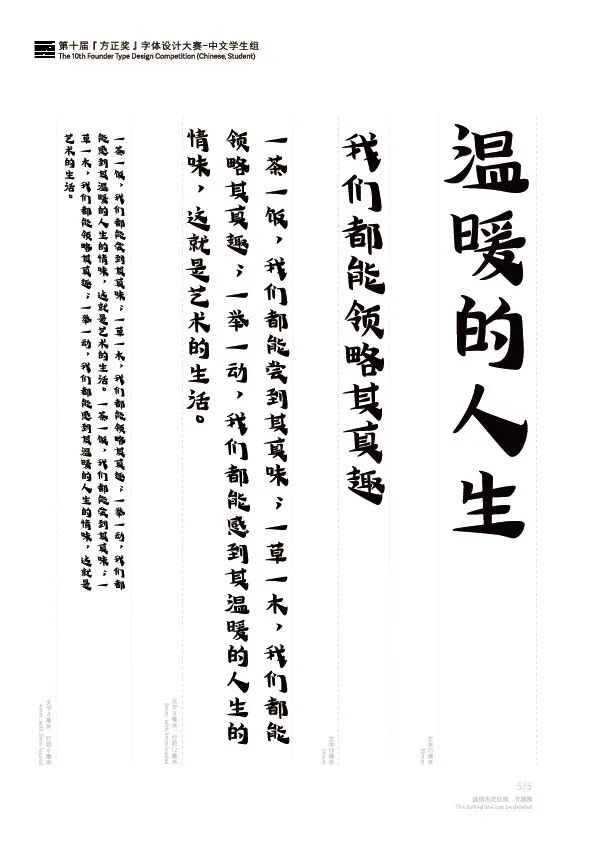 第十届「方正奖」字体设计大赛-中文学生组
The 10th Founder Type Design Competition (Chinese, Student)
温暖的人生
文字35毫米
我们都能领略其真趣
文字18毫米
一茶一饭，我们都能尝到其真味；一草一木，我们都能
领略其真趣；一举一动，我们都能感到其温暖的人生的
情味，这就是艺术的生活。
文字8毫米 行距12毫米
一茶一饭，我们都能尝到其真味；一草一木，我们都能领略其真趣；一举一动，我们都
能感到其温暖的人生的情味，这就是艺术的生活。一茶一饭，我们都能尝到其真味；一
草一木，我们都能领略其真趣；一举一动，我们都能感到其温暖的人生的情味，这就是
艺术的生活。
文字4毫米 行距6毫米
5/5
虚线为定位线，可删除
The dotted line can be deleted